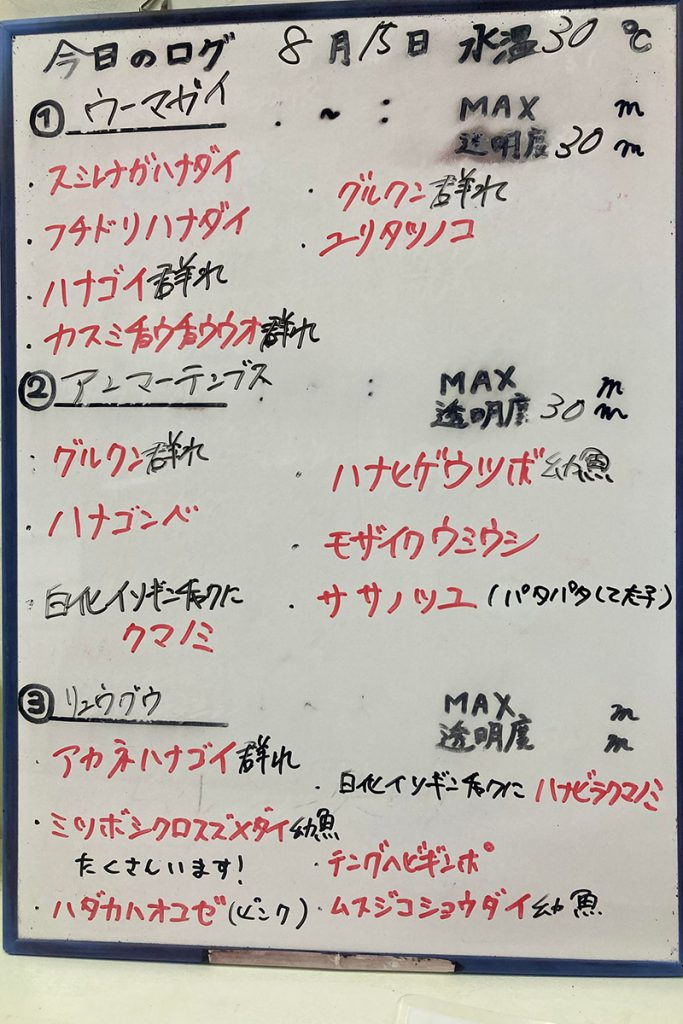 今日のログ 8月15日 水温30℃
① ウーマガイ . ~ : MAX m
透明度30m
・スミレナガハナダイ
・フチドリハナダイ
・ハナゴイ群れ
・カスミチョウチョウウオ群れ
・グルクン群れ
・ユリタツノコ
② アンマーテンブス : MAX m
透明度30m
・グルクン群れ
・ハナゴンベ
・白化イソギンチャクに
クマノミ
・ハナヒゲウツボ幼魚
・モザイクウミウシ
・ササノツユ(パタパタしてた子)
③ リュウグウ MAX m
透明度 m
・アカネハナゴイ群れ
・ミツボシクロスズメダイ幼魚
たくさんいます!
・ハダカハオコゼ(ピンク)
・白化イソギンチャクにハナビラクマノミ
・テングヘビギンポ
・ムスジコショウダイ幼魚